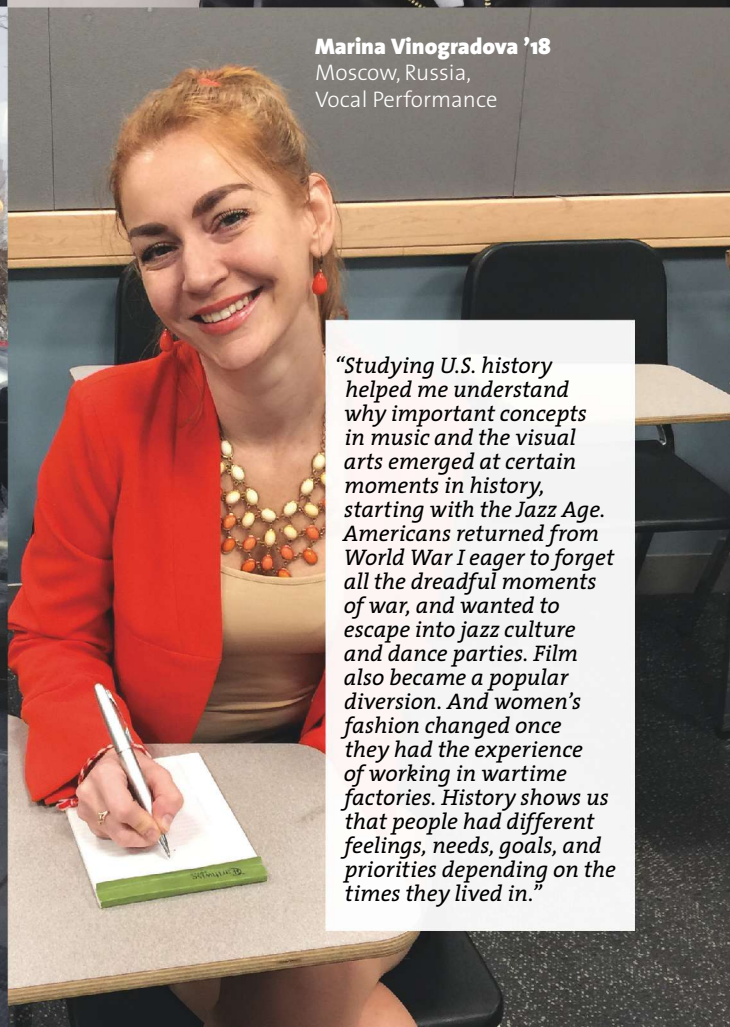 Marina Vinogradova ’18
Moscow, Russia,
Vocal Performance
“Studying U.S. history
helped me understand
why important concepts
in music and the visual
arts emerged at certain
moments in history,
starting with the Jazz Age.
Americans returned from
World War I eager to forget
all the dreadful moments
of war, and wanted to
escape into jazz culture
and dance parties. Film
also became a popular
diversion. And women’s
fashion changed once
they had the experience
of working in wartime
factories. History shows us
that people had different
feelings, needs, goals, and
priorities depending on the
times they lived in.”